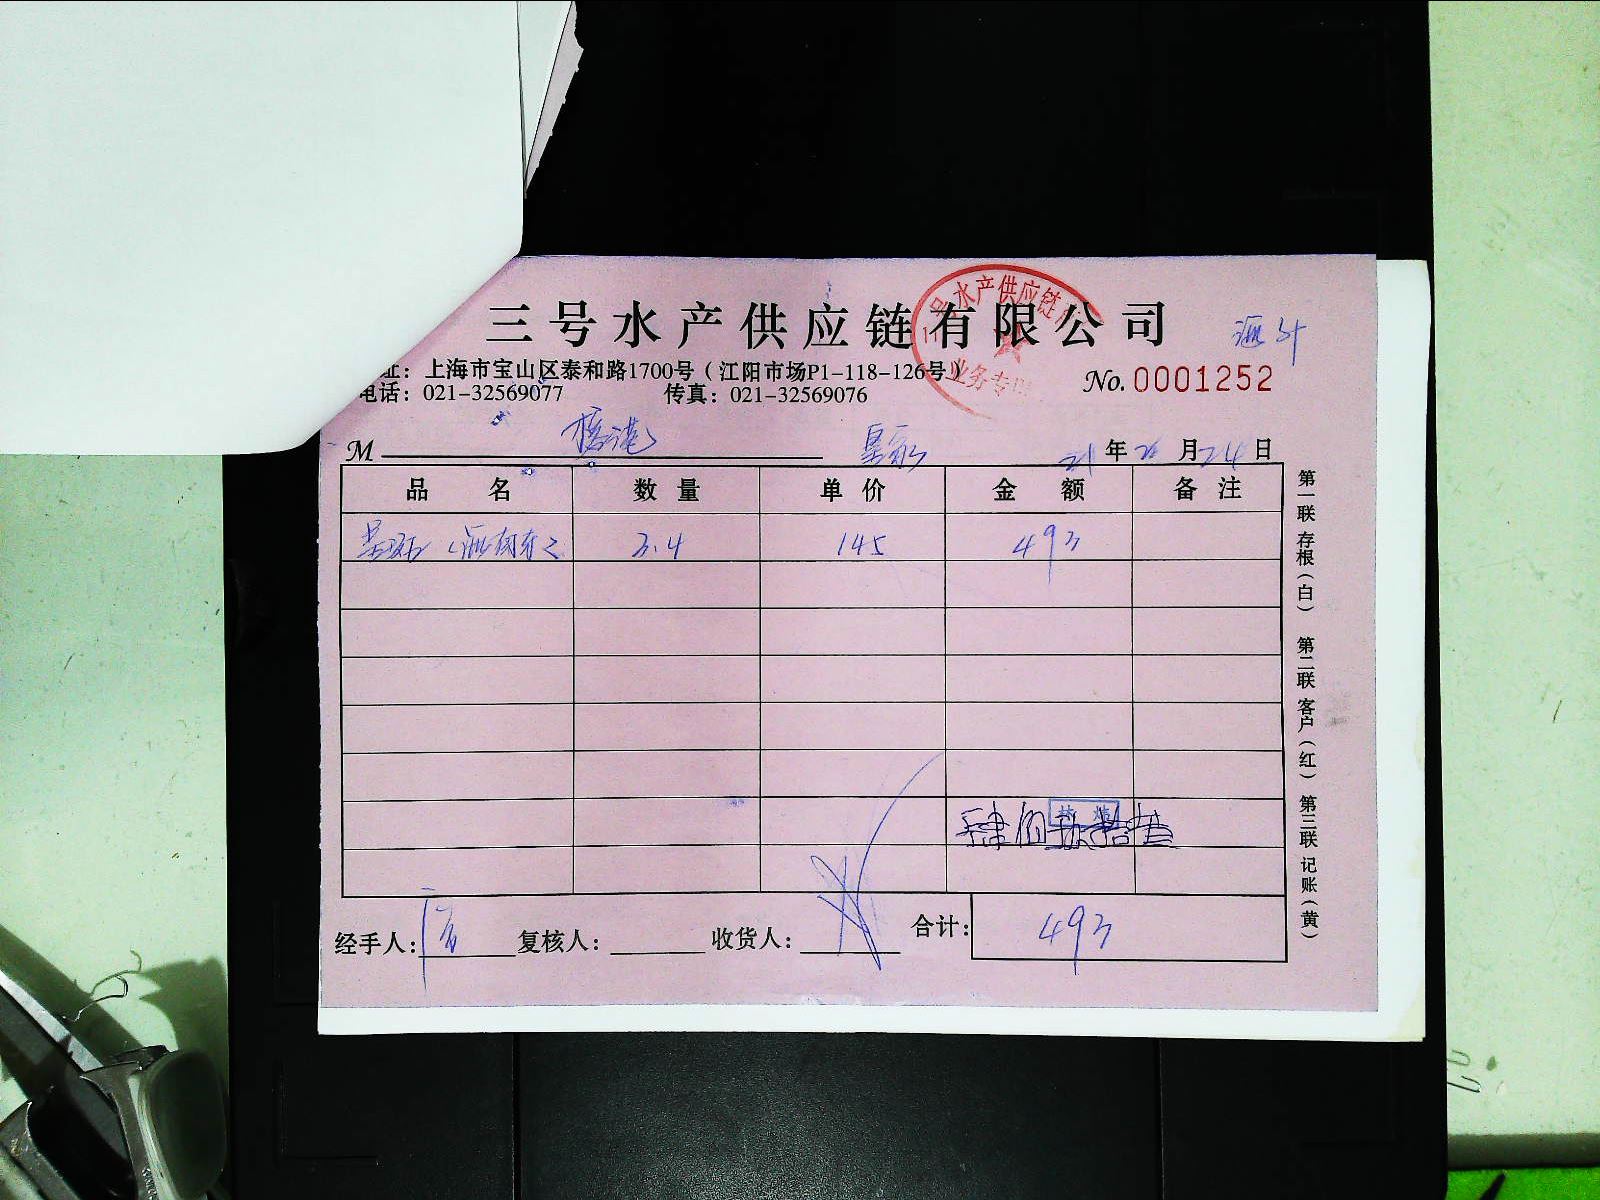 三号水产供应链有限公司
三号水产供应链
业务专
址：上海市宝山区泰和路1700号（江阳市场P1-118-126号）
No. 0001252
电话：021-32569077 传真：021-32569076
M 21年 月24日
品名 数量 单价 金额 备注
3.4 145 493
肆佰
经手人： 复核人： 收货人： 合计： 493
第一联 存根（白） 第二联 客户（红） 第三联 记账（黄）